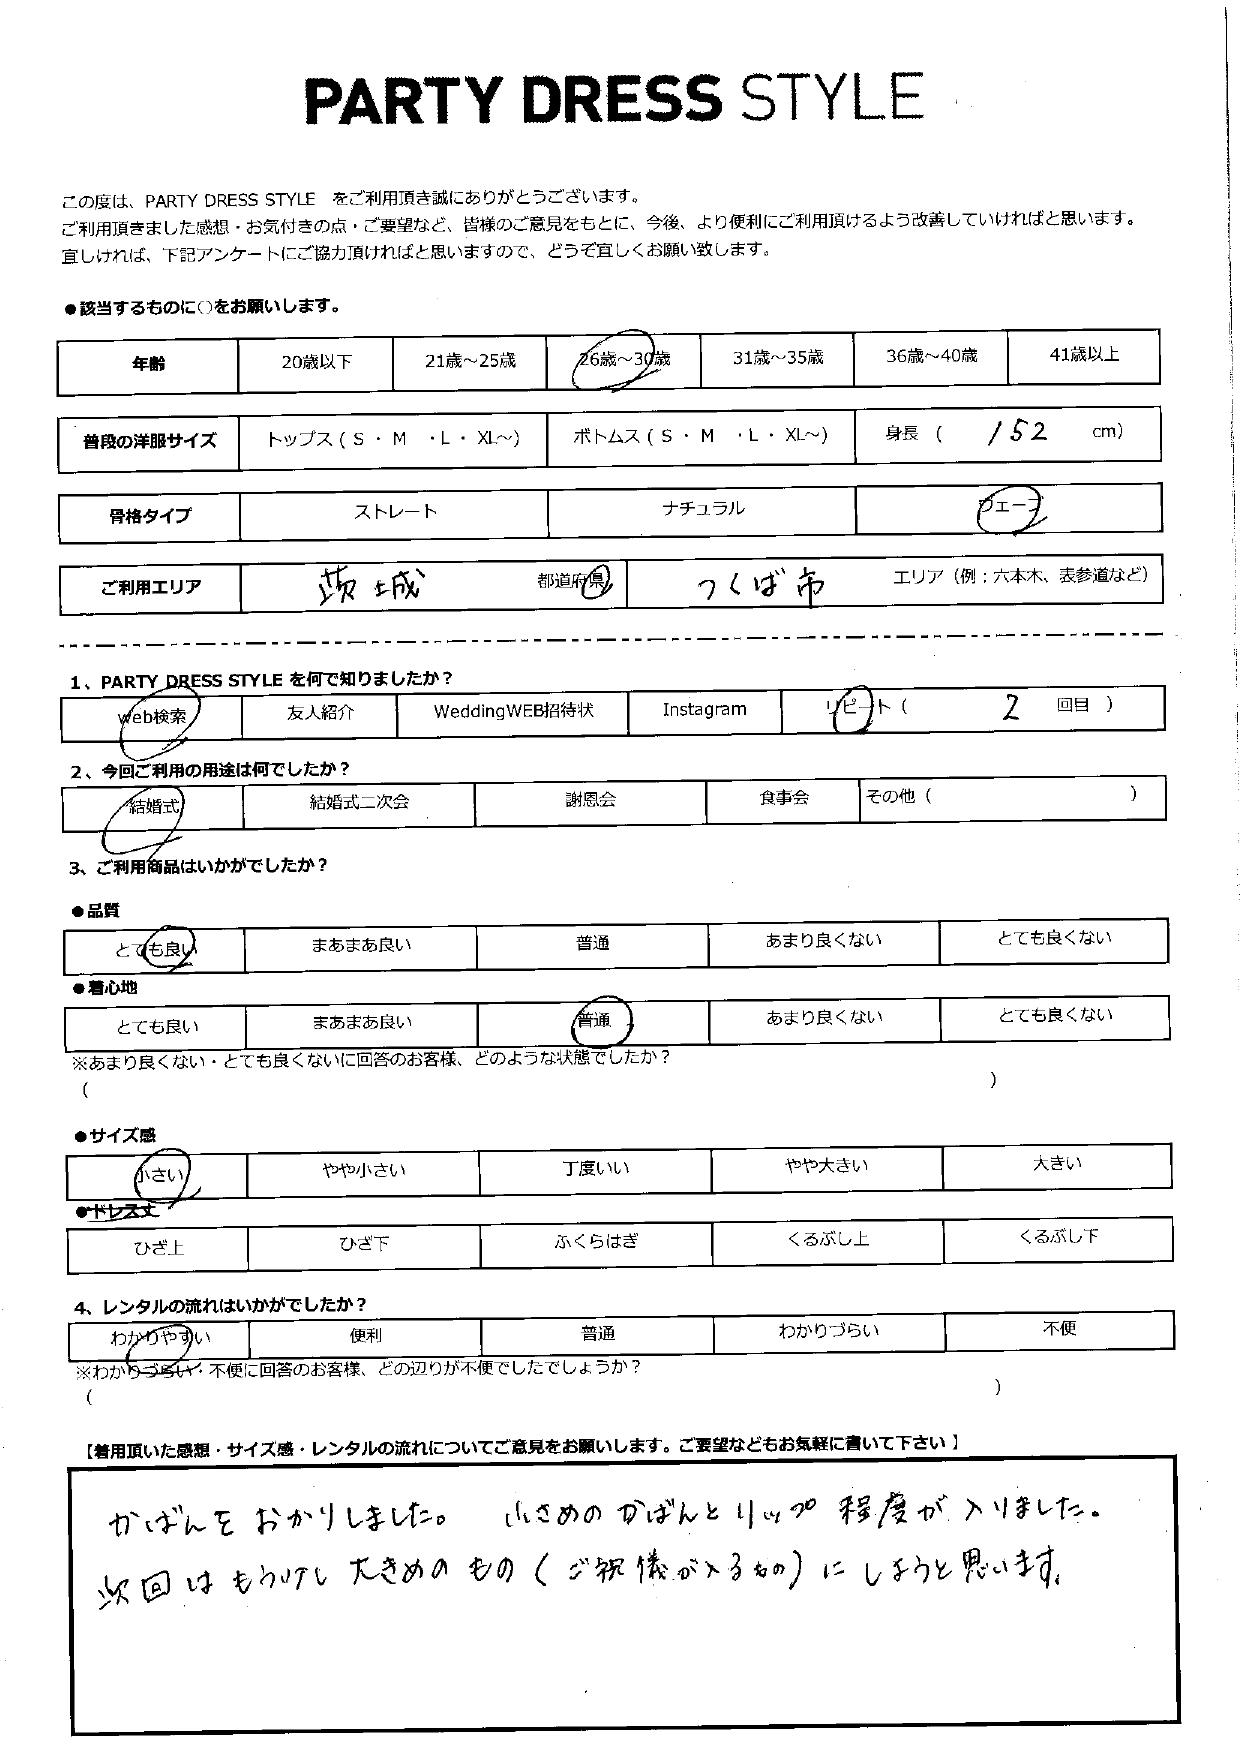 PARTY DRESS STYLE
この度は、PARTY DRESS STYLE をご利用頂き誠にありがとうございます。
ご利用頂きました感想・お気付きの点・ご要望など、皆様のご意見をもとに、今後、より便利にご利用頂けるよう改善していければと思います。
宜しければ、下記アンケートにご協力頂ければと思いますので、どうぞ宜しくお願い致します。
●該当するものに○をお願いします。
年齢 20歳以下 21歳～25歳 26歳～30歳 31歳～35歳 36歳～40歳 41歳以上
普段の洋服サイズ トップス ( S ・ M ・L ・ XL～) ボトムス ( S ・ M ・L ・ XL～) 身長 ( 152 cm)
骨格タイプ ストレート ナチュラル ウェーブ
ご利用エリア 茨城 都道府県 つくば市 エリア（例：六本木、表参道など）
1、PARTY DRESS STYLE を何で知りましたか？
Web検索 友人紹介 WeddingWEB招待状 Instagram リピート ( 2 回目 )
2、今回ご利用の用途は何でしたか？
結婚式 結婚式二次会 謝恩会 食事会 その他 ( )
3、ご利用商品はいかがでしたか？
●品質
とても良い まあまあ良い 普通 あまり良くない とても良くない
●着心地
とても良い まあまあ良い 普通 あまり良くない とても良くない
※あまり良くない・とても良くないに回答のお客様、どのような状態でしたか？
( )
●サイズ感
小さい やや小さい 丁度いい やや大きい 大きい
●ドレス丈
ひざ上 ひざ下 ふくらはぎ くるぶし上 くるぶし下
4、レンタルの流れはいかがでしたか？
わかりやすい 便利 普通 わかりづらい 不便
※わかりづらい・不便に回答のお客様、どの辺りが不便でしたでしょうか？
( )
【着用頂いた感想・サイズ感・レンタルの流れについてご意見をお願いします。ご要望などもお気軽に書いて下さい 】
かばんをおかりしました。 小さめのかばんとリップ程度が入りました。
次回はもう少し大きめのもの（ご祝儀が入るもの）にしようと思います。